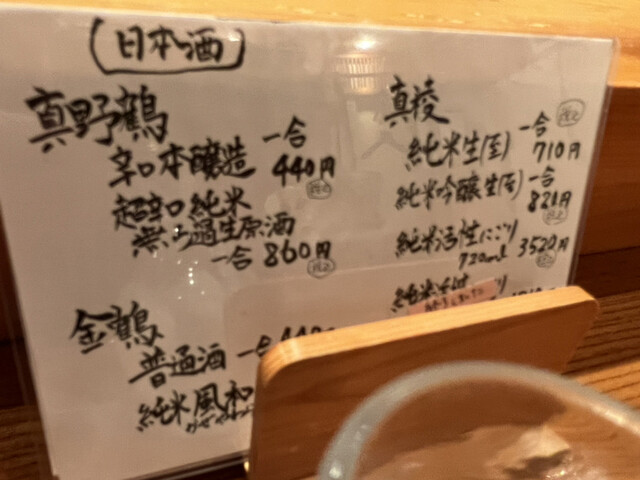 日本酒
真野鶴
辛口本醸造 一合 440円 税込
超辛口純米
無ろ過生原酒
一合 860円 税込
金鶴
普通酒 一合
純米風和
真稜
純米生(至) 一合 710円 税込
純米吟醸生(至) 一合 820円 税込
純米活性にごり
720ml 3520円 税込